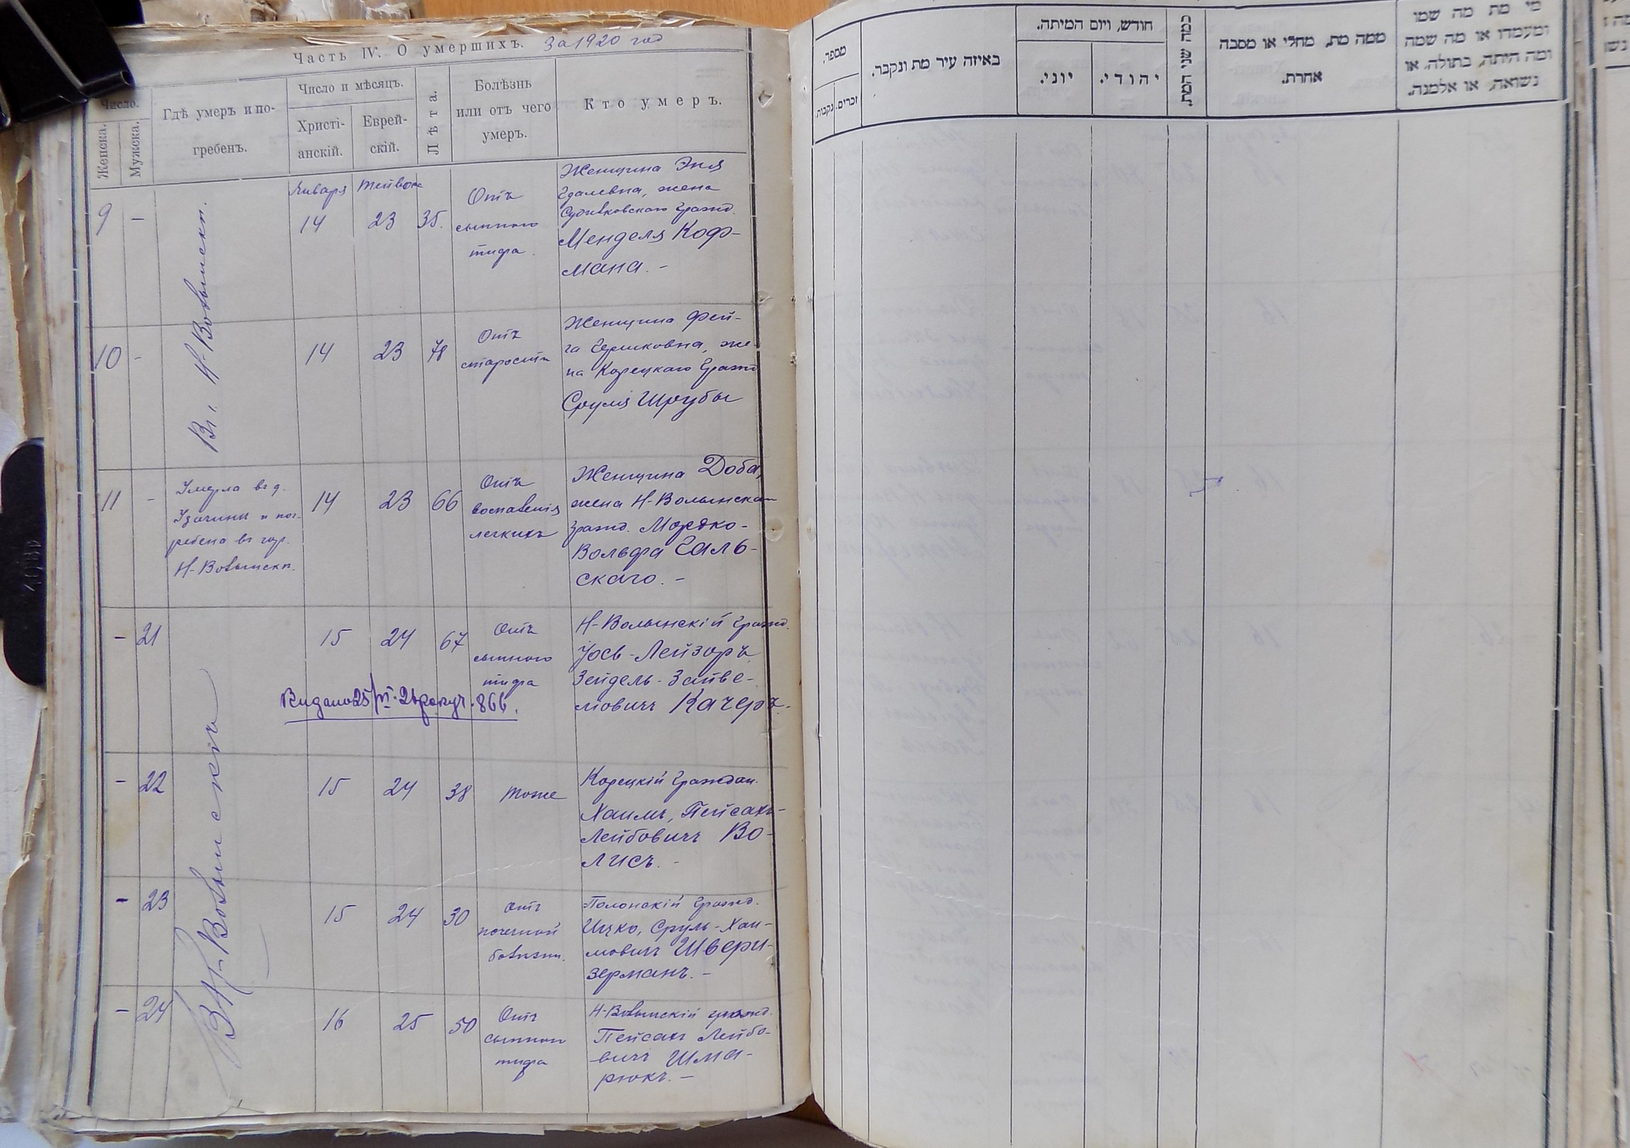 Часть IV. О умершихъ. За 1920 год
Число.
Женска.
Мужска.
Гдѣ умеръ и по-
гребенъ.
Число и мѣсяцъ.
Христі-
анскій.
Еврей-
скій.
Лѣта.
Болѣзнь
или отъ чего
умеръ.
Кто умеръ.
Января
9 - 14 23 35.
Отъ
сыпного
тифа.
Женщина Эня
жена
Гражд.
Менделя Коф-
мана. -
Въ Н-Волынскѣ.
10 - 14 23 78
Отъ
старости
Женщина Фей-
га же-
на Корецкаго Гражд
Сруля Шрубы
11 - 14 23 66
Умерла въ д.
и пог-
ребена въ гор.
Н-Волынскѣ.
Отъ
воспаленія
легкихъ
Женщина Доба,
жена Н-Волынскаго
гражд. Мордко-
Вольфа Галь-
скаго. -
- 21 15 24 67
Отъ
сыпного
тифа
Н-Волынскій Гражд.
Лейзоръ
Зейдель-Зайве-
ловичъ Качеръ.
866.
- 22 15 24 38
тоже
Корецкій Граждан.
Хаимъ, Пейсахъ-
Лейбовичъ Во-
лисъ. -
В Н-Волынскѣ
- 23 15 24 30
Отъ
почечной
болѣзни.
Полонскій Гражд.
Ицко, Сруль-Хаи-
мовичъ Швери-
зерманъ. -
- 24 16 25 50
Отъ
сыпного
тифа
Н-Волынскій гражд.
Пейсах Лейбо-
вичъ Шма-
рюкъ. -
מספר.
זכרים.
נקבות.
באיזה עיר מת ונקבר.
חודש, ויום המיתה.
יוני.
יהודי.
כמה שני המת.
ממה מת, מחלי או מסבה
אחרת.
מי מת מה שמו
ומעמדו או מה שמה
ומה היתה, בתולה, או
נשואה, או אלמנה.